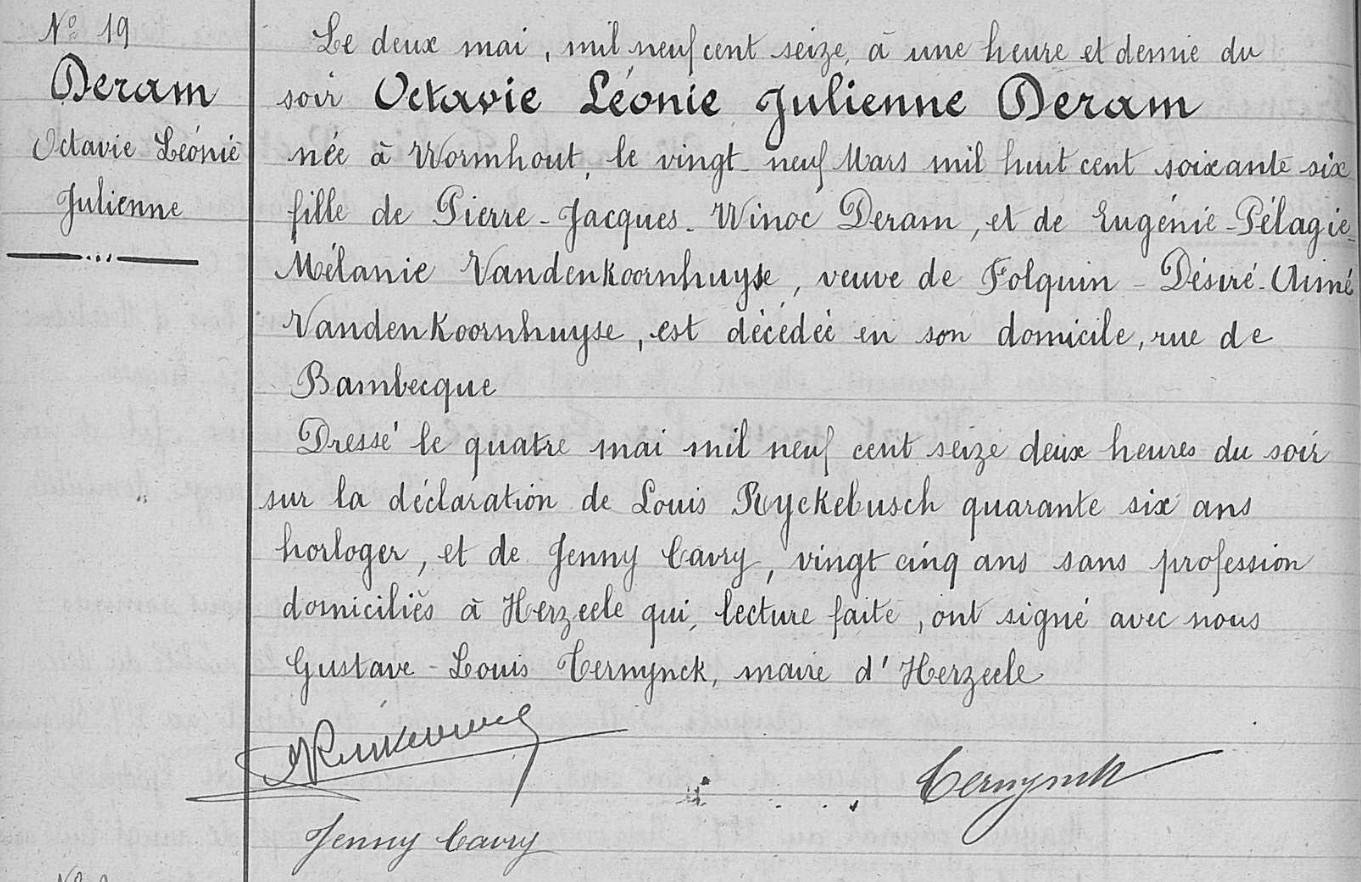 N° 19
Deram
Octavie Léonie
Julienne
Le deux mai, mil neuf cent seize, à une heure et demie du
soir Octavie Léonie Julienne Deram
née à Wormhout, le vingt-neuf Mars mil huit cent soixante-six
fille de Pierre-Jacques-Winoc Deram, et de Eugénie-Pélagie-
Mélanie Vandenkoornhuyse, veuve de Folquin-Désiré-Aimé
Vandenkoornhuyse, est décédée en son domicile, rue de
Bambecque
Dressé le quatre mai mil neuf cent seize deux heures du soir
sur la déclaration de Louis Ryckebusch quarante six ans
horloger, et de Jenny Cavry, vingt cinq ans sans profession
domiciliés à Herzeele qui, lecture faite, ont signé avec nous
Gustave-Louis Ternynck, maire d'Herzeele
Ternynck
Jenny Cavry